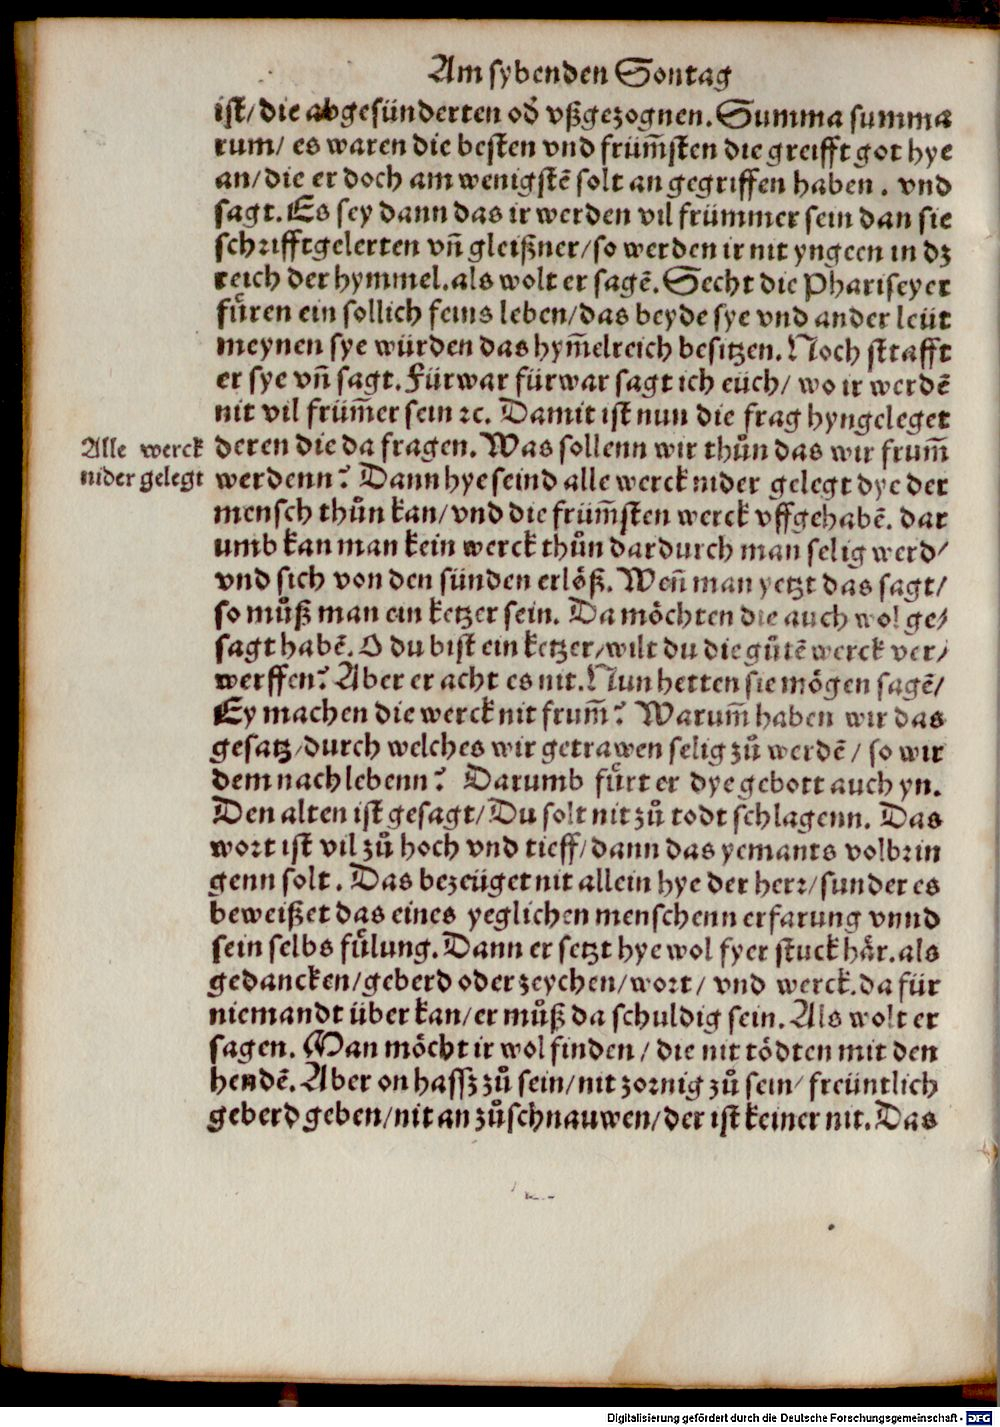 Am sybenden Sontag
ist/ die abgesünderten od̕ vßgezognen. Summa summa
rum/ es waren die besten vnd früm̃sten die greifft got hye
an/ die er doch am wenigstẽ solt an gegriffen haben. vnd
sagt. Es sey dann das ir werden vil frümmer sein dan sie
schrifftgelerten vñ gleißner/ so werden ir nit yngeen in dz
reich der hymmel. als wolt er sagẽ. Secht die Phariseyer
fuͤren ein sollich feins leben/ das beyde sye vnd ander leüt
meynen sye würden das hym̃elreich besitzen. Noch strafft
er sye vñ sagt. Fürwar fürwar sagt ich eüch/ wo ir werdẽ
nit vil früm̃er sein ꝛc. Damit ist nun die frag hyngeleget
Alle werck
nider gelegt
deren die da fragen. Was sollenn wir thuͦn das wir frum̃
werdenn? Dann hye seind alle werck nider gelegt dye der
mensch thuͦn kan/ vnd die früm̃sten werck vffgehabẽ. dar
umb kan man kein werck thuͦn dardurch man selig werd/
vnd sich von den sünden erlöß. Weñ man yetzt das sagt/
so muͦß man ein ketzer sein. Da möchten die auch wol ge/
sagt habẽ. O du bist ein ketzer/ wilt du die guͦtẽ werck ver/
werffen? Aber er acht es nit. Nun hetten sie mögen sagẽ/
Ey machen die werck nit frum̃? Warum̃ haben wir das
gesatz/ durch welches wir getrawen selig zuͦ werdẽ/ so wir
dem nach lebenn? Darumb fuͤrt er dye gebott auch yn.
Den alten ist gesagt/ Du solt nit zuͦ todt schlagenn. Das
wort ist vil zuͦ hoch vnd tieff/ dann das yemants volbrin
genn solt. Das bezeüget nit allein hye der herr/ sunder es
beweißet das eines yeglichen menschenn erfarung vnnd
sein selbs fuͤlung. Dann er setzt hye wol fyer stuck här. als
gedancken/ geberd oder zeychen/ wort/ vnd werck. da für
niemandt über kan/ er muͦß da schuldig sein. Als wolt er
sagen. Man möcht ir wol finden/ die nit tödten mit den
hendẽ. Aber on hassz zuͦ sein/ nit zornig zuͦ sein/ freüntlich
geberd geben/ nit an zuͦschnauwen/ der ist keiner nit. Das
Digitalisierung gefördert durch die Deutsche Forschungsgemeinschaft - DFG